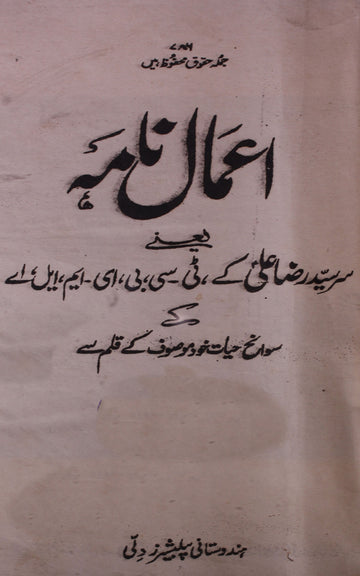 ۷۸۶
جملہ حقوق محفوظ ہیں
اعمال نامہ
یعنے
سر سیّد رضا علی کے، ٹی۔ سی، بی، ای۔ ایم، ایل، اے
کے
سوانح حیات خود موصوف کے قلم سے
ہندوستانی پبلیشرز دلّی